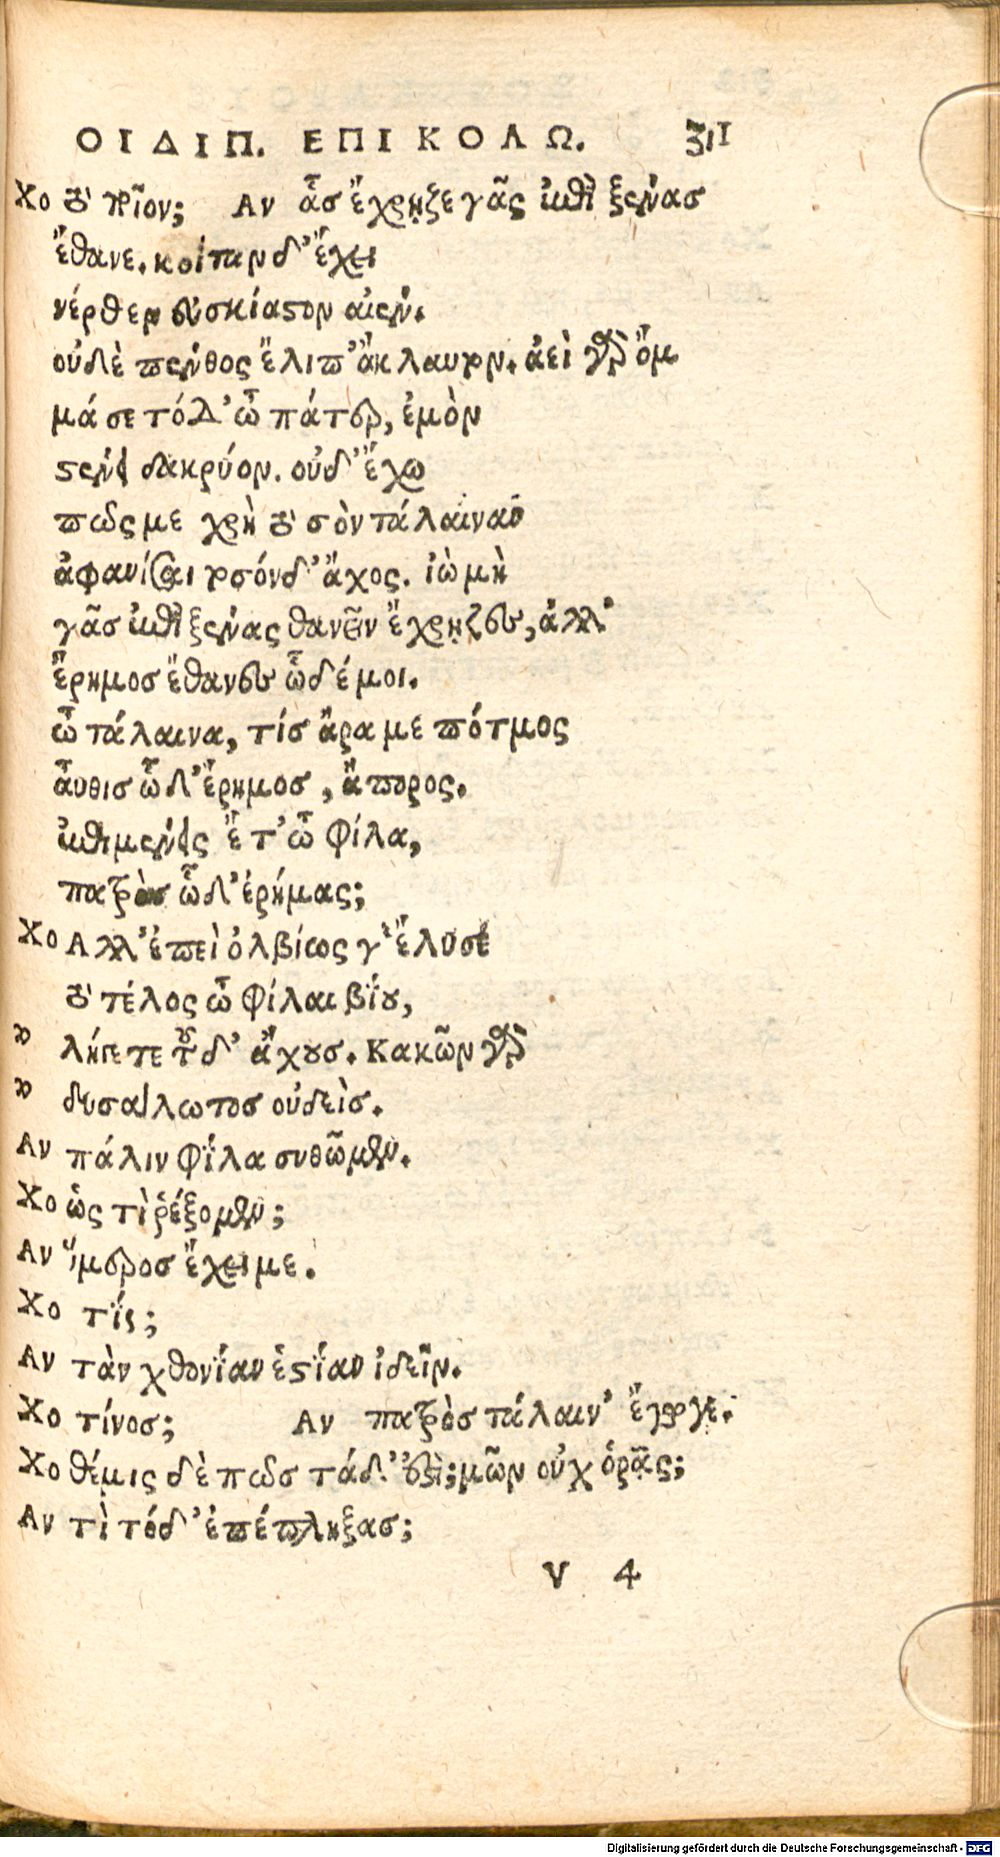 ΟΙΔΙΠ. ΕΠΙ ΚΟΛΩ. 311
Χο τὸ ποῖον; Αν ἇσ ἔχρῃζε γᾶς ἐπὶ ξένασ
ἔθανε. κοίταν δ' ἔχει
νέρθεν εὐσκίαστον αἰέν.
οὐδὲ πένθος ἔλιπ' ἄκλαυτον. ἀεὶ γὰρ ὄμ
μά σε τόδ' ὦ πάτερ, ἐμὸν
στένει δακρύον. οὐδ' ἔχω
πωδς με χρὴ τὸ σὸν τάλαιναν
ἀφανίσαι τοσόνδ' ἄχος. ἰὼ μὴ
γᾶσ ἐπὶ ξένας θανεῖν ἔχρῃζες, ἀλλ'
ἔρημοσ ἔθανες ὧδέ μοι.
ὦ τάλαινα, τίσ ἄρα με πότμος
αὖθισ ὧδ' ἔρημοσ, ἄπορος.
ἐπιμένεις ἔτ' ὦ φίλα,
πατρὸσ ὧδ' ἐρήμας;
Χο Αλλ' ἐπεὶ ὀλβίως γ' ἔλυσε
τὸ τέλος ὦ φίλαι βίου,
λήγετε τοῦδ' ἄχουσ. Κακῶν γὰρ
δυσάλωτοσ οὐδείσ.
Αν πάλιν φίλα συθῶμεν.
Χο ὡς τὶ ῥέξομεν;
Αν ἵμεροσ ἔχει με.
Χο τίς;
Αν τὰν χθονίαν ἑστίαν ἰδεῖν.
Χο τίνοσ; Αν πατρὸσ τάλαιν' ἔγωγε.
Χο θέμις δὲ πωδσ τάδ' ἐστὶ; μῶν οὐχ ὁρᾷς;
Αν τὶ τόδ' ἐπέπληξας;
V 4
Digitalisierung gefördert durch die Deutsche Forschungsgemeinschaft - DFG